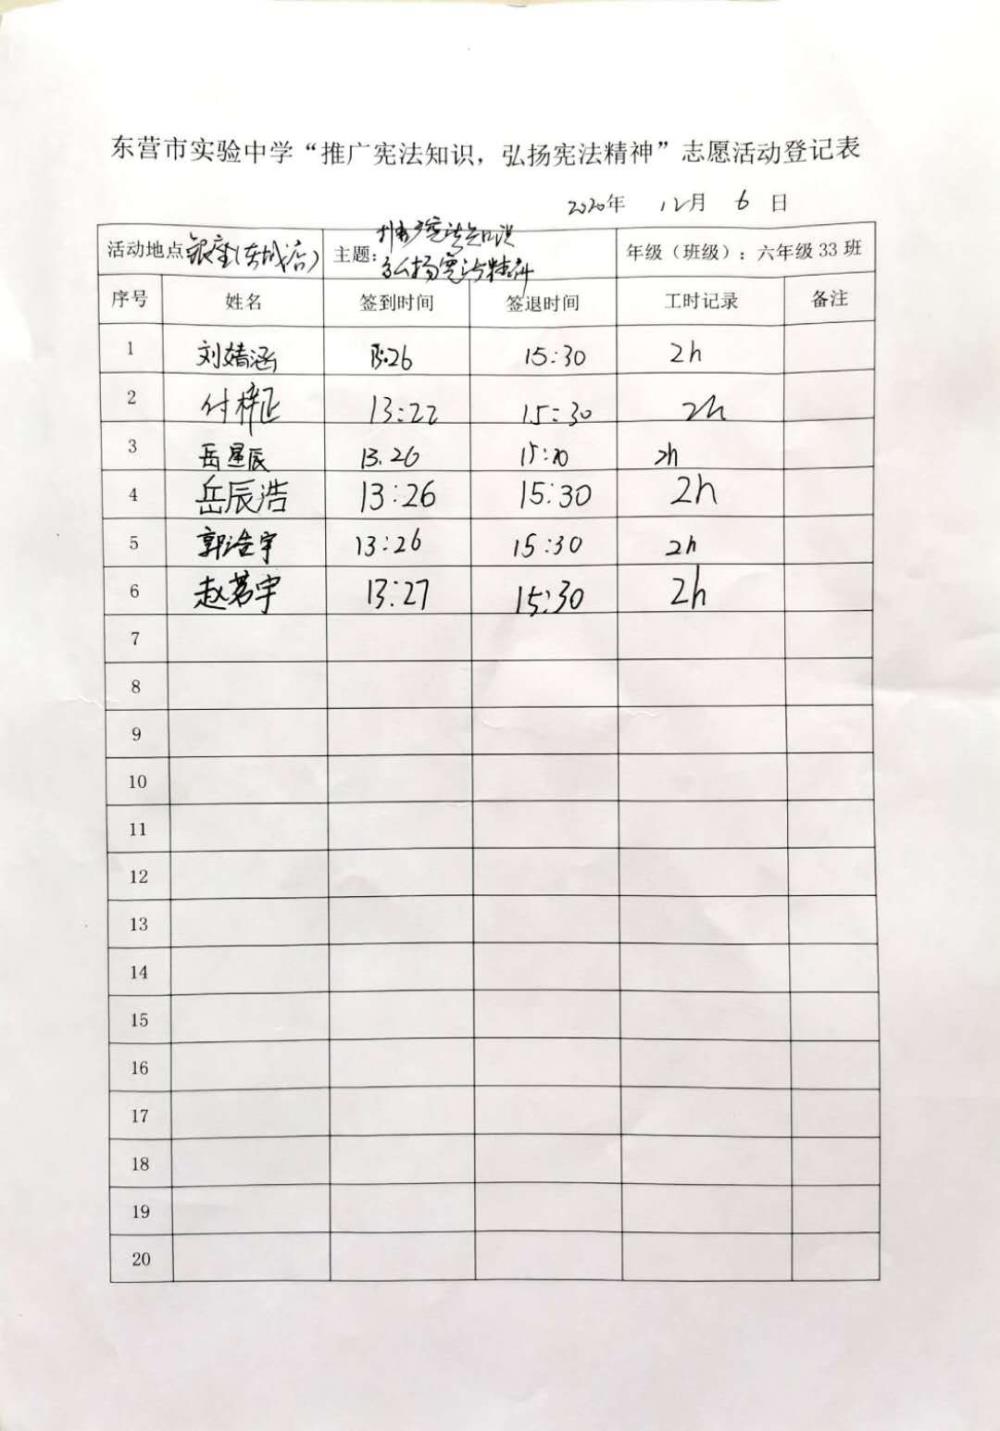 东营市实验中学“推广宪法知识，弘扬宪法精神”志愿活动登记表
2020年 12月 6 日
活动地点 银座(东城店) 主题: 推广宪法知识 弘扬宪法精神 年级（班级）: 六年级 33 班
序号 姓名 签到时间 签退时间 工时记录 备注
1 刘婧涵 13:26 15:30 2h
2 付梓正 13:22 15:30 2h
3 岳星辰 13.26 15:30 2h
4 岳辰浩 13:26 15:30 2h
5 郭 宇 13:26 15:30 2h
6 赵茗宇 13:27 15:30 2h
7
8
9
10
11
12
13
14
15
16
17
18
19
20